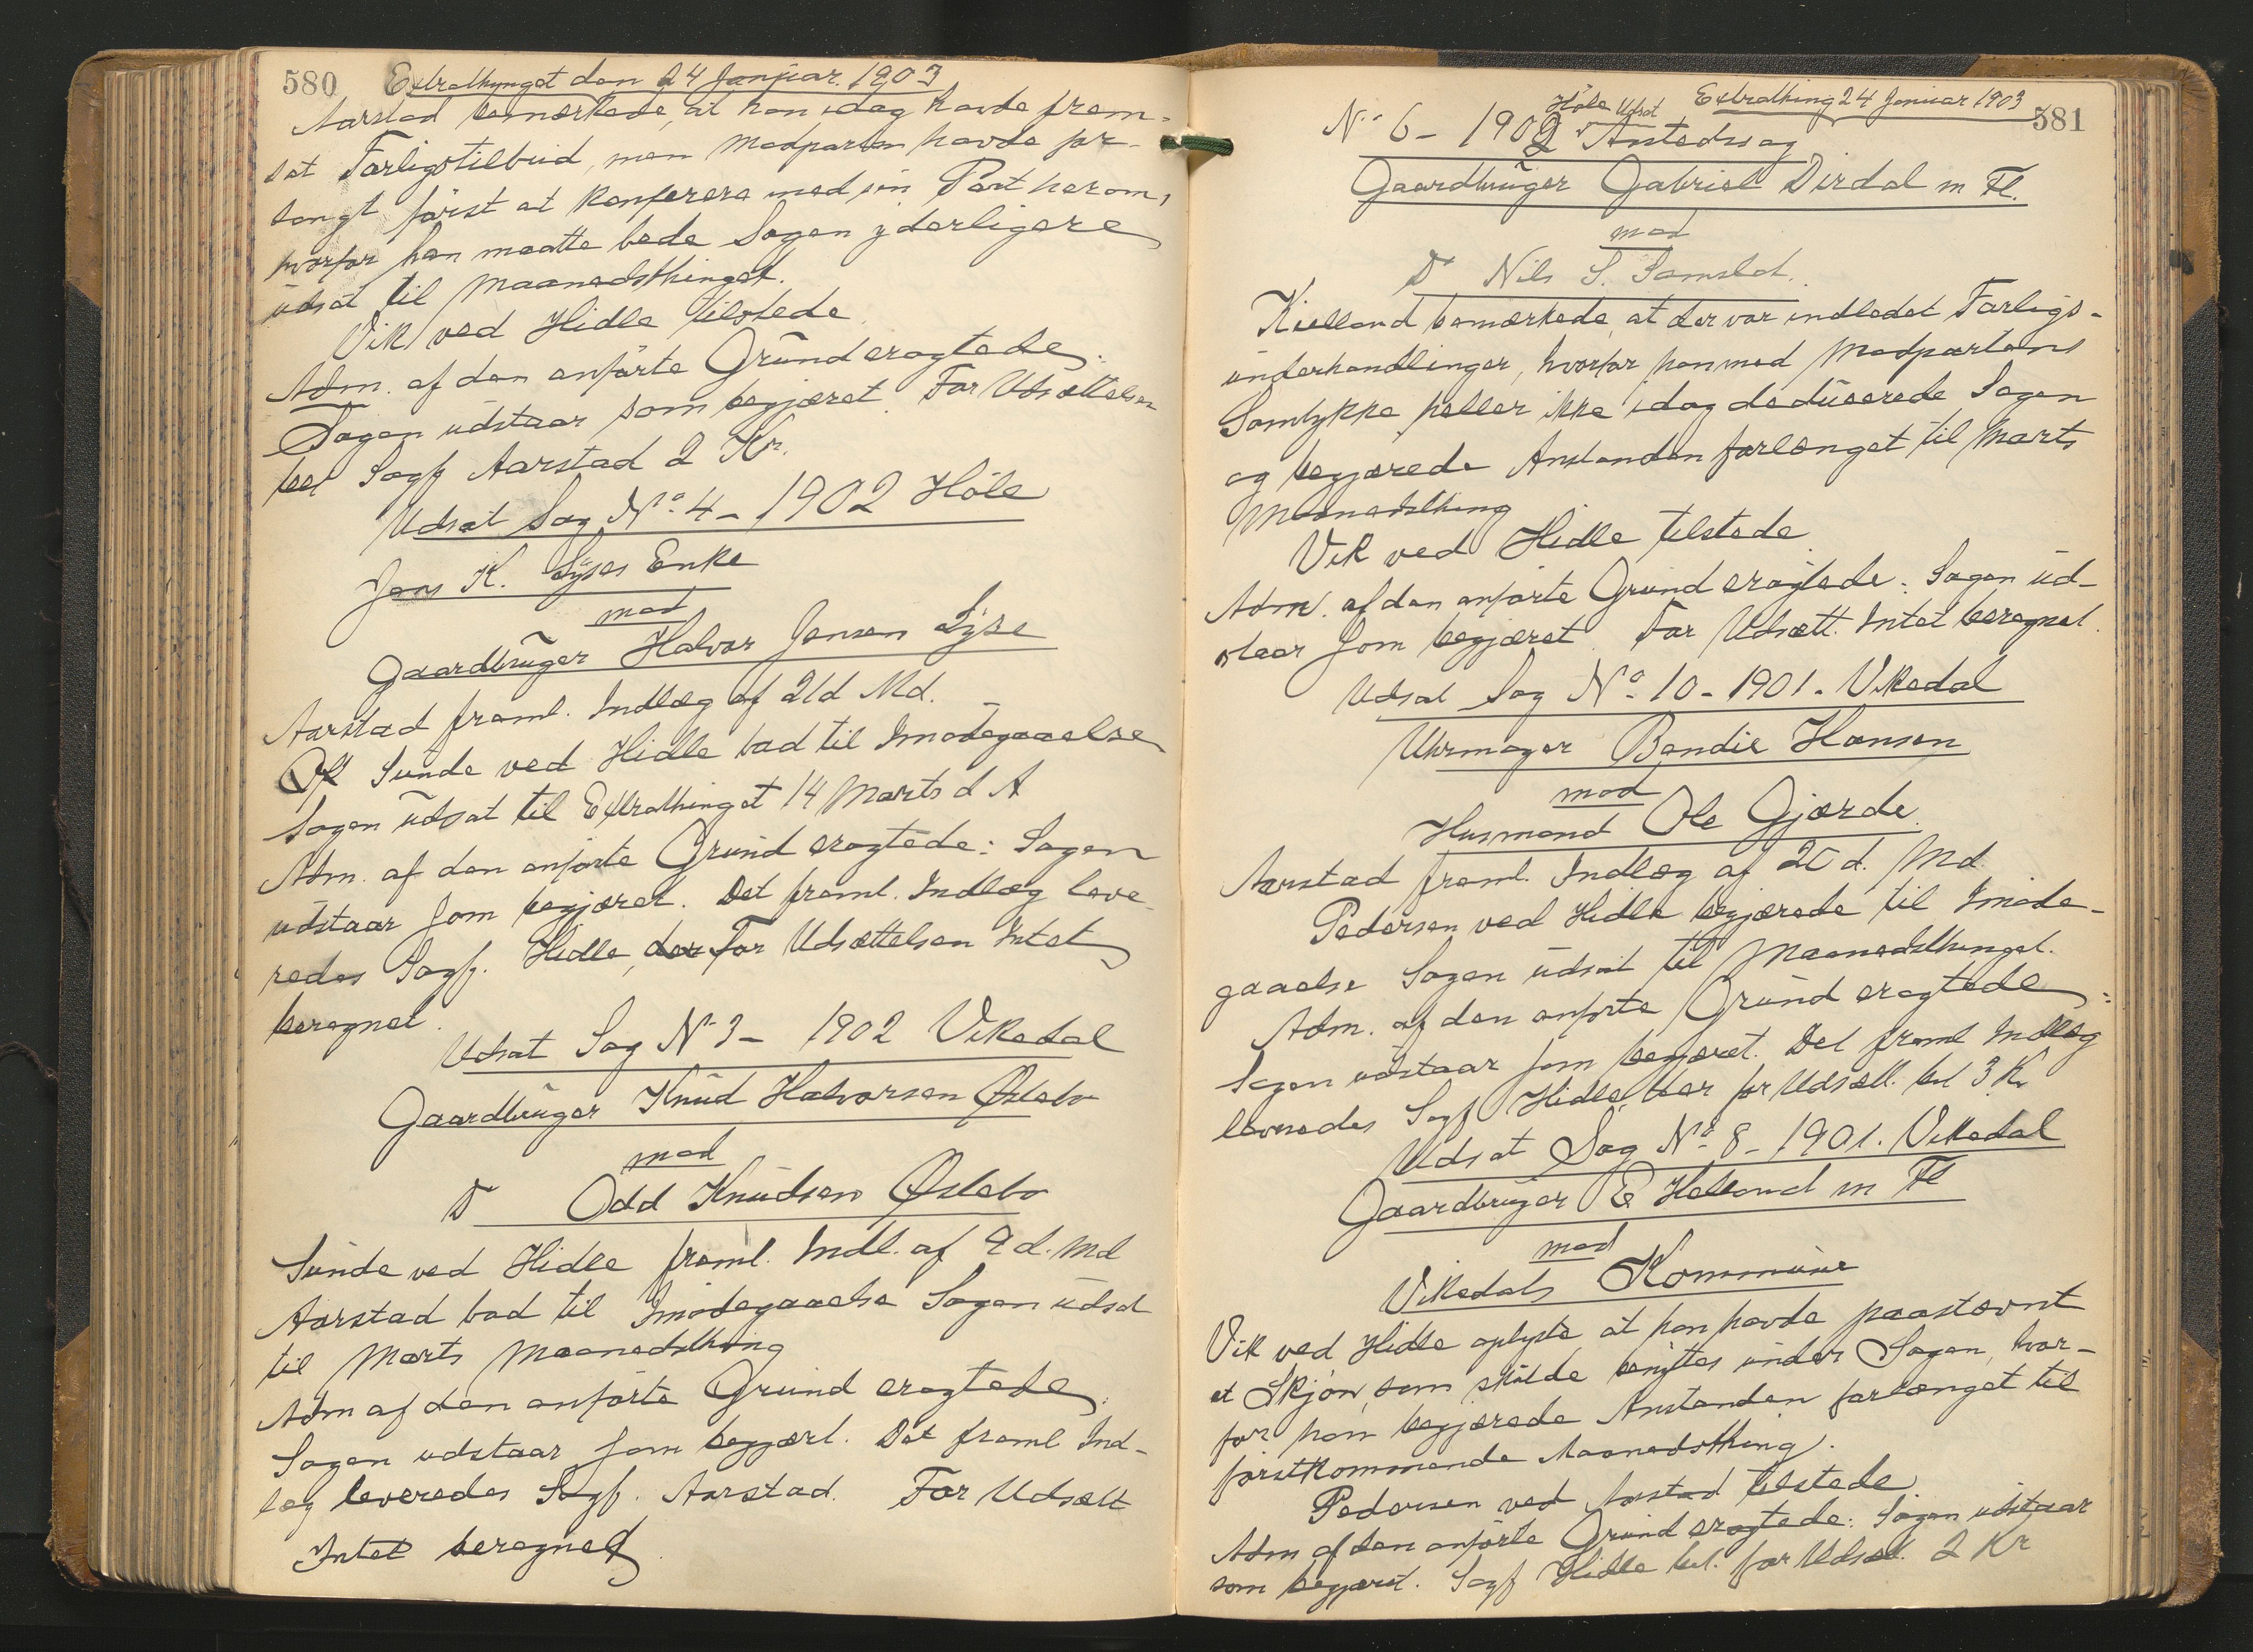 580 Extrathinget den 24 Januar. 1903
Aarstad bemærkede, at han idag havde frem-
sat Forligstilbud, men Modparten havde for-
langt først at konferere med sin Part herom,
hvorfor han maatte bede Sagen yderligere
udsat til Maanedsthinget.
Vik ved Hidle tilstede.
Adm. af den anførte Grund eragtede:
Sagen udstaar som begjæret. For Udsættelsen
bet Sagf Aarstad 2 Kr.
Udsat Sag No 4 - 1902 Höle
Jens K. Lyses Enke
mod
Gaardbruger Halvor Jensen Lyse
Aarstad freml. Indlæg af 21 d Md.
Sunde ved Hidle bad til Imødegaaelse
Sagen udsat til Extrathinget 14 Marts d A
Adm. af den anførte Grund eragtede: Sagen
udstaar som begjæret. Det freml. Indlæg leve-
redes Sagf. Hidle, der For Udsættelsen Intet
beregnet.
Udsat Sag No 3 - 1902 Vikedal
Gaardbruger Knud Halvorsen Østebø
mod
Do Odd Knudsen Østebø
Sunde ved Hidle freml. Indl. af 9 d. Md
Aarstad bad til Imødegaaelse Sagen udsat
til Marts Maanedsthing
Adm af den anførte Grund eragtede:
Sagen udstaar som begjært. Det freml Ind-
læg leveredes Sagf. Aarstad. For Udsætt
Intet beregnet.
Extrathing 24 Januar 1903 581
Höle Udsat
No 6 - 1902 Aastedssag
Gaardbruger Gabriel Dirdal m Fl.
mod
Do Nils S.
Kielland bemærkede, at der var indledet Forligs-
underhandlinger, hvorfor han med Modpartens
Samtykke heller ikke idag deducerede Sagen
og begjærede Anstanden forlænget til Marts
Maanedsthing
Vik ved Hidle tilstede
Adm. af den anførte Grund eragtede: Sagen ud-
staar som begjæret. For Udsætt. Intet beregnet.
Udsat Sag No 10 - 1901. Vikedal
Uhrmager Bendix Hansen
mod
Husmand Ole Gjærde.
Aarstad freml. Indlæg af d. Md
Pedersen ved Hidle begjærede til Imøde-
gaaelse Sagen udsat til Maanedsthinget.
Adm. af den anførte Grund eragtede:
Sagen udstaar som begjæret. Det freml Indlæg
leveredes Sagf Hidle, der for Udsætt. bet 3 Kr
Udsat Sag No 8 - 1901. Vikedal
Gaardbruger E Helland m Fl
mod
Vikedals Kommune
Vik ved Hidle oplyste at han havde paastævnt
et Skjøn, som skulde benyttes under Sagen, hvor-
for han begjærede Anstanden forlænget til
førstkommende Maanedsthing.
Pedersen ved Aarstad tilstede
Adm af den anførte Grund eragtede: Sagen udstaar
som begjæret. Sagf Hidle bet. for Udsæt. 2 Kr